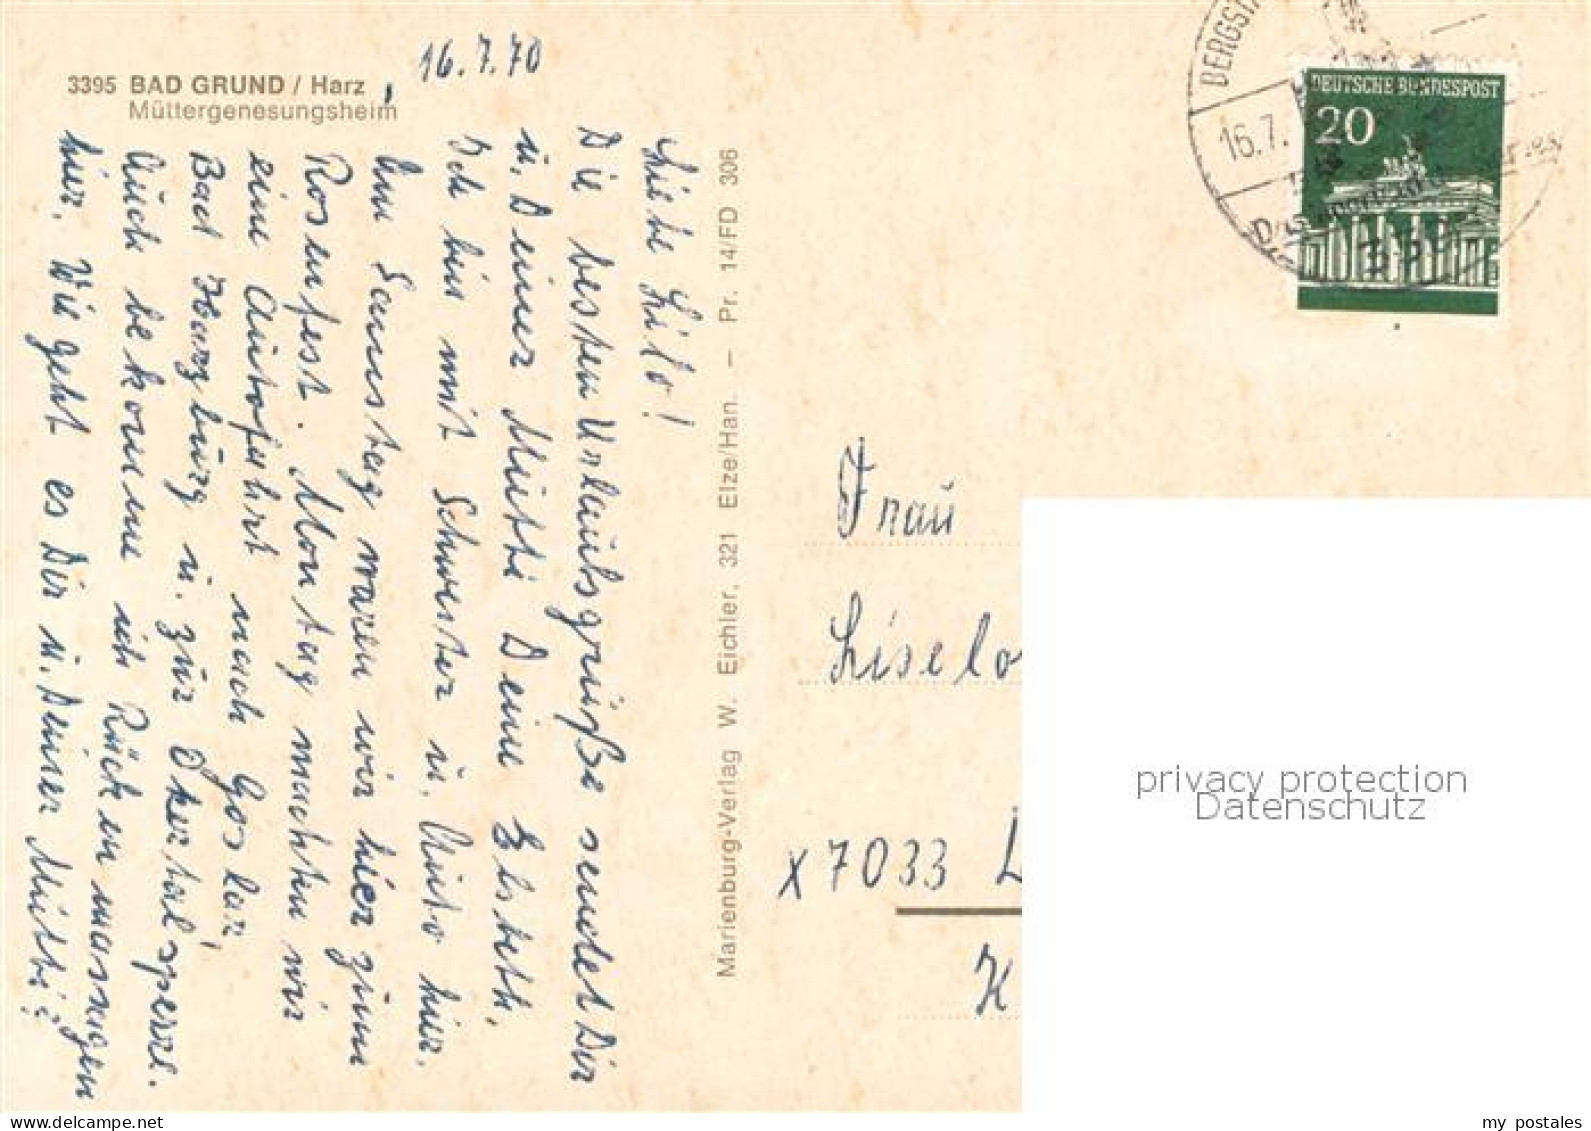 3395 BAD GRUND / Harz, 16.7.70
Müttergenesungsheim
Liebe Lilo!
Die besten Urlaubsgrüße sendet Dir
u. Deiner Mutti Deine Elsbeth,
Ich bin mit Schwester u. Auto hier.
Am Samstag waren wir hier zum
Rosenfest. Montag machten wir
eine Autofahrt nach Goslar,
Bad Harzburg u. zur Okertalsperre.
Auch bekomme ich Rückenmassagen
hier. Wie geht es Dir u. Deiner Mutti?
Marienburg-Verlag W. Eichler, 321 Elze/Han. – Pr. 14/FD 306
BERGST
16.7.
DEUTSCHE BUNDESPOST
20
Frau
Liselo
X 7033 L
K
privacy protection
Datenschutz
www.delcampe.net
my_postales